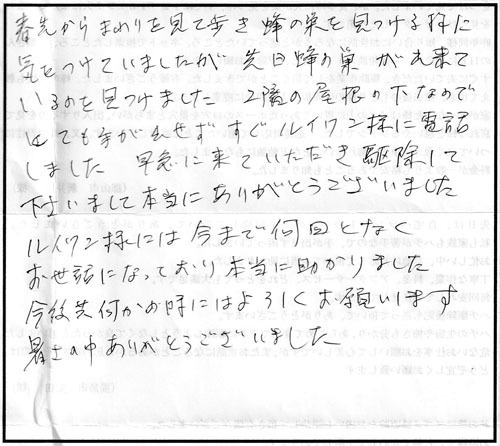 春先からまわりを見て歩き蜂の巣を見つける様に
気をつけていましたが 先日蜂の巣が出来て
いるのを見つけました 2階の屋根の下なので
とても手が出せず すぐルイワン様に電話
しました 早急に来ていただき駆除して
下さいまして本当にありがとうございました
ルイワン様には今まで何回となく
お世話になっており本当に助かりました
今後共何かの時にはよろしくお願いします
暑さの中ありがとうございました